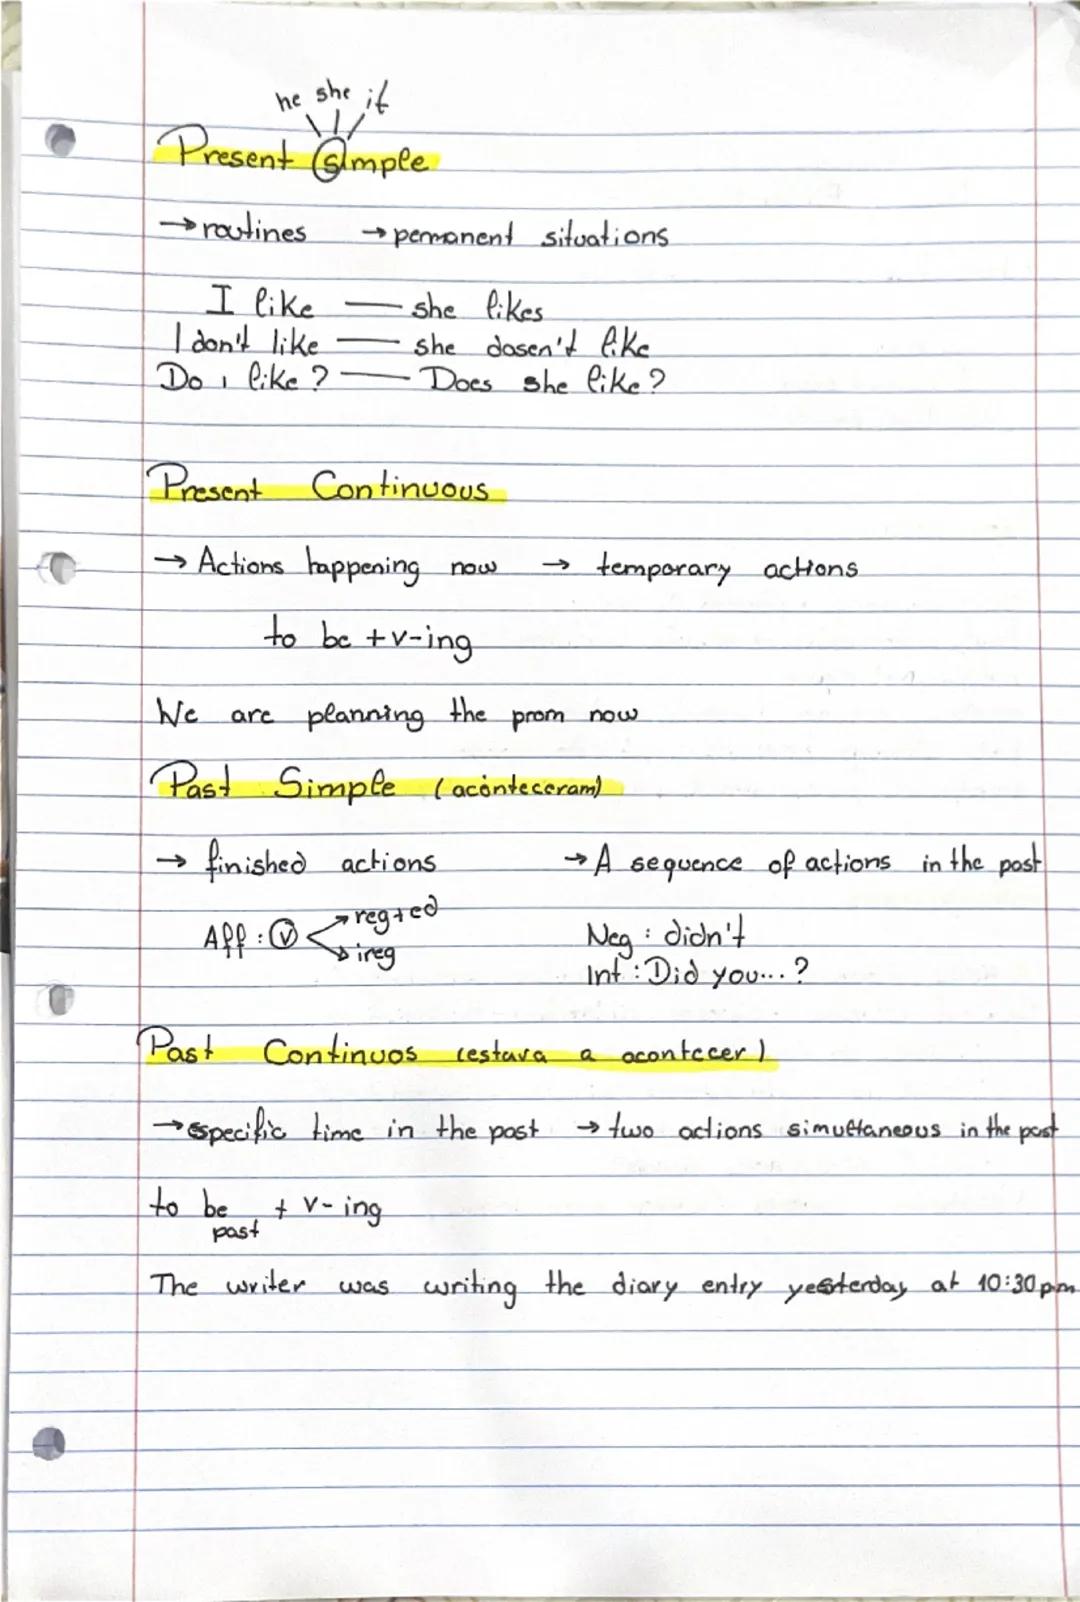 he she it
Present simple
→ routines → pemanent situations
I like — she likes
I don't like — she dosen't like
Do i like ? — Does she like ?
Present Continuous
→ Actions happening now → temporary actions
to be + v-ing
We are planning the prom now
Past Simple (aconteceram)
→ finished actions → A sequence of actions in the past
Aff : V → reg+ed
→ ireg
Neg : didn't
Int : Did you... ?
Past Continuos (estava a acontecer)
→ specific time in the past → two actions simultaneous in the past
to be + v-ing
past
The writer was writing the diary entry yesterday at 10:30 pm